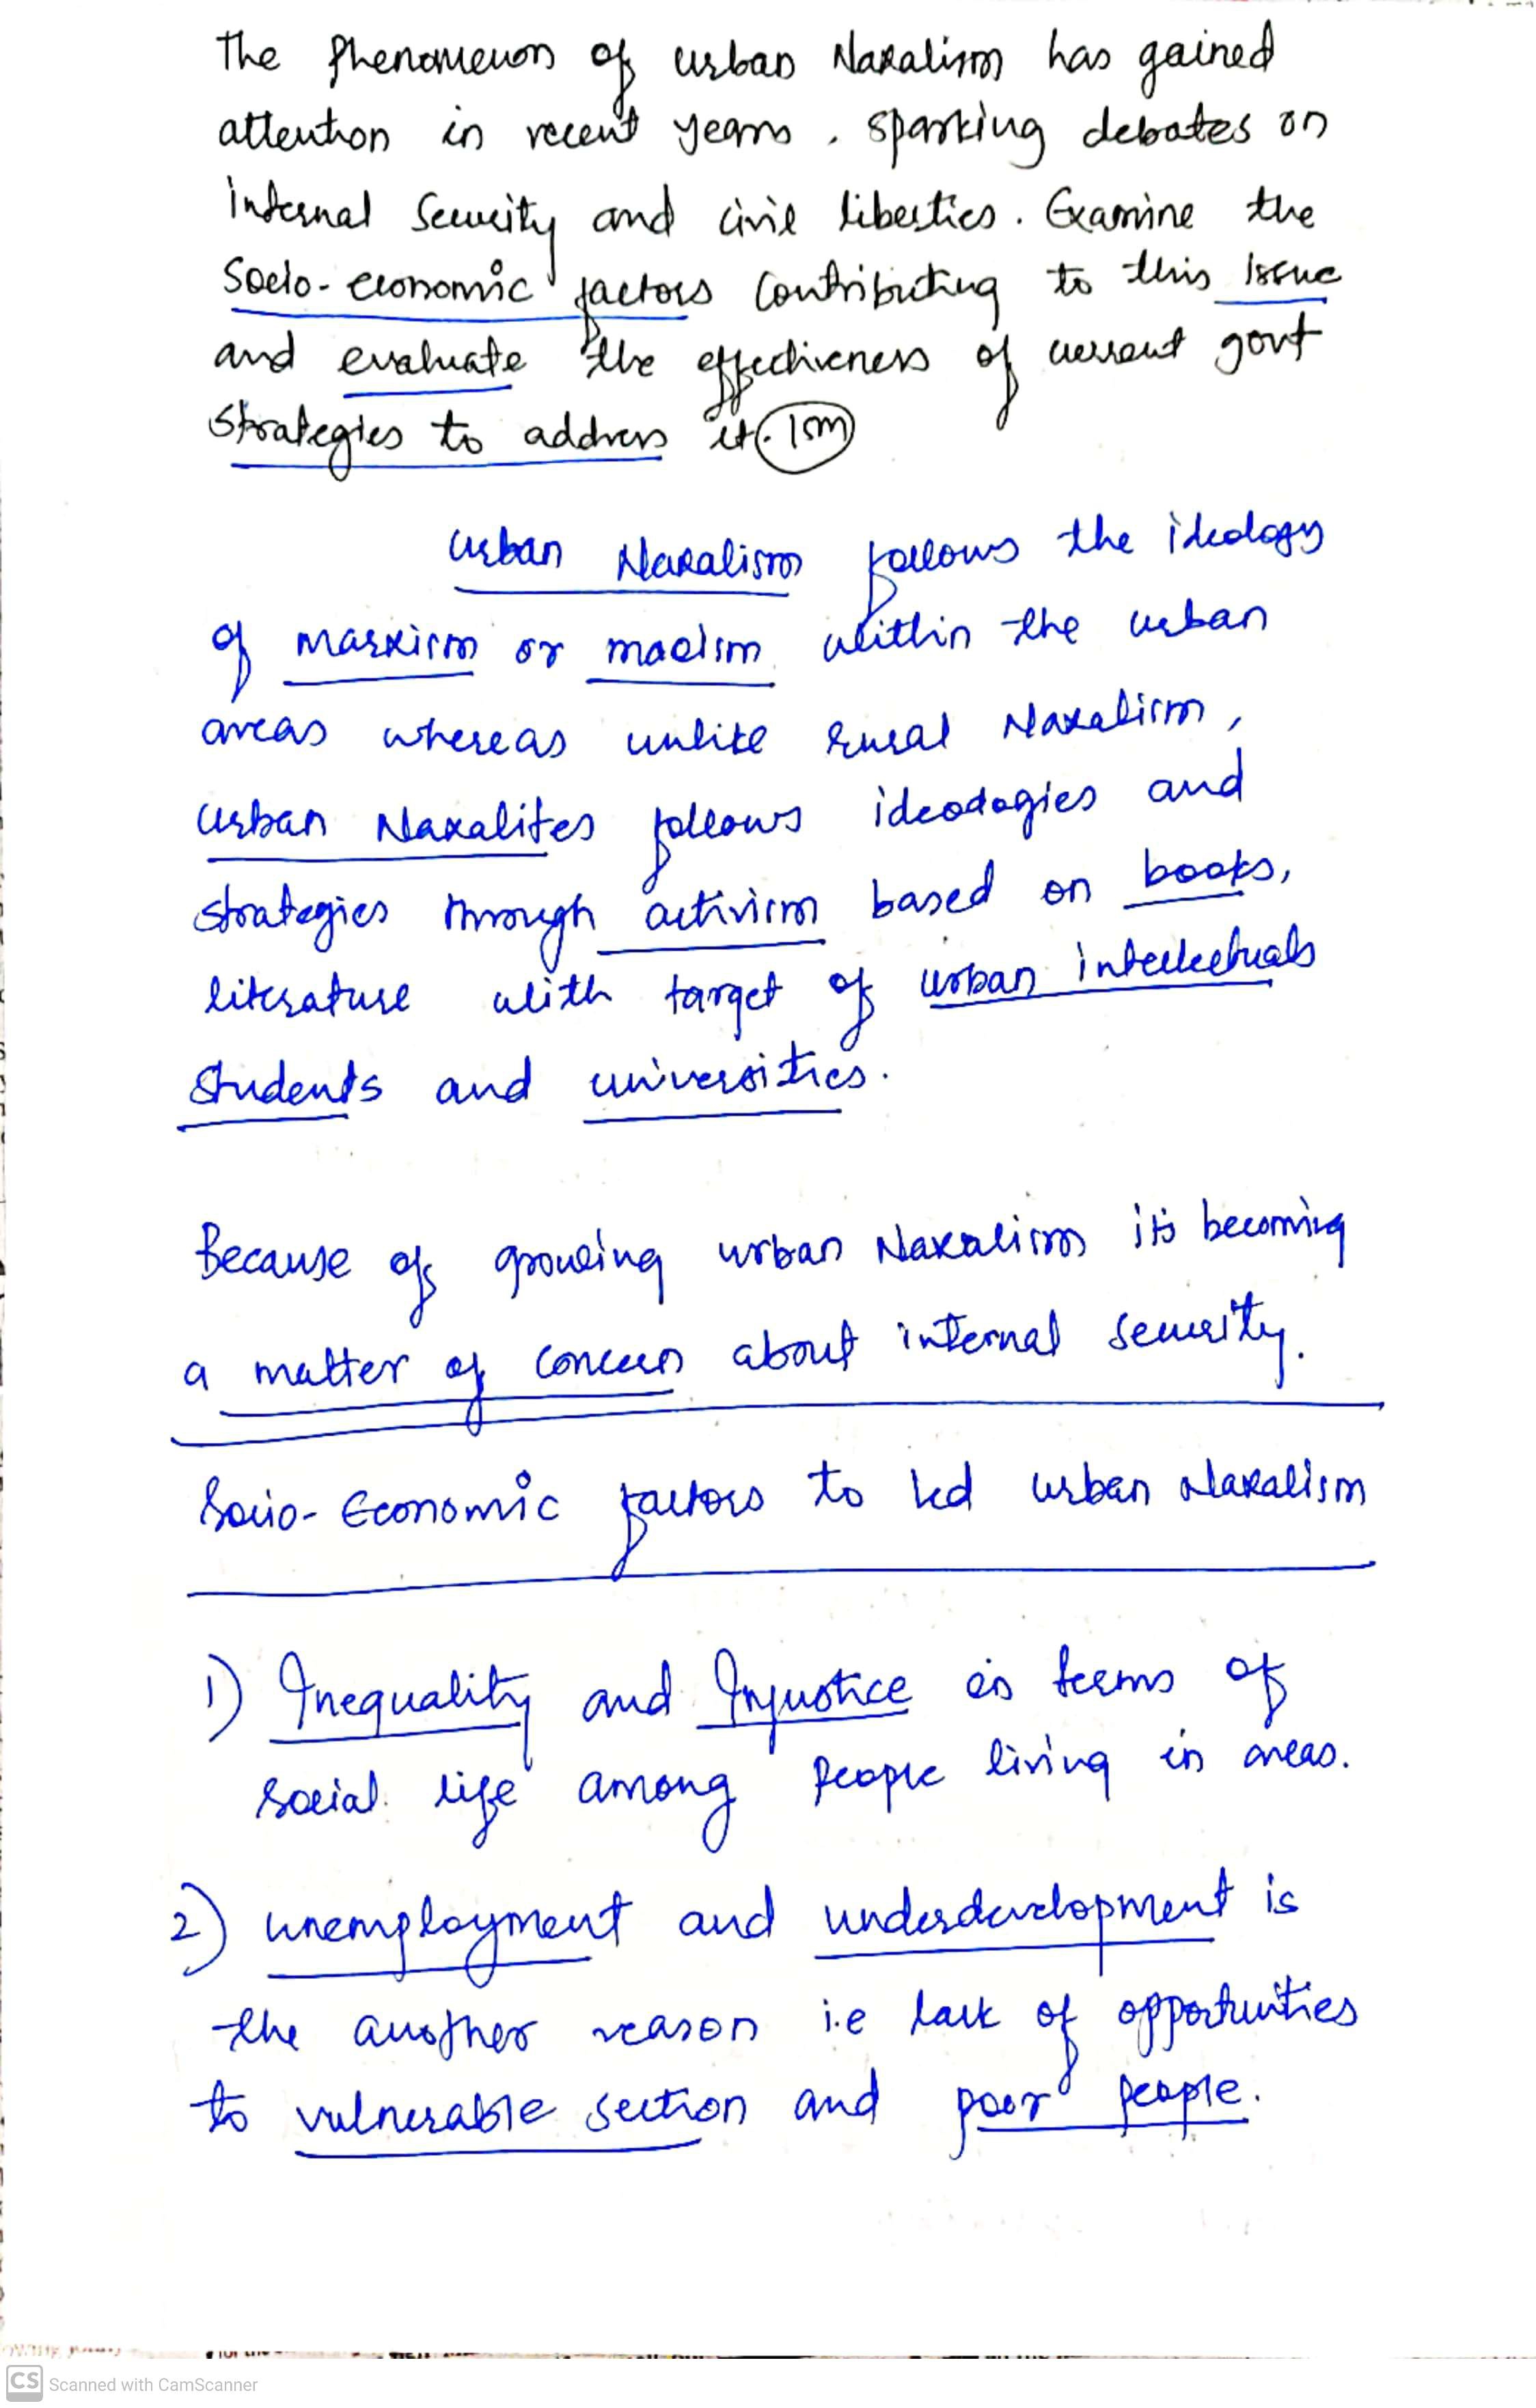 The phenomenon of urban Naxalism has gained
attention in recent years, sparking debates on
internal security and civil liberties. Examine the
Socio-economic factors contributing to this issue
and evaluate the effectiveness of current govt
strategies to address it. 15m
Urban Naxalism follows the ideology
of marxism or maoism within the urban
areas whereas unlike rural Naxalism,
Urban Naxalites follows ideologies and
strategies through activism based on books,
literature with target of urban intellectuals
students and universities.
Because of growing urban Naxalism its becoming
a matter of concern about internal security.
Socio-Economic factors to led urban Naxalism
1) Inequality and Injustice in terms of
social life among people living in areas.
2) unemployment and underdevelopment is
the another reason i.e lack of opportunities
to vulnerable section and poor people.
CS Scanned with CamScanner